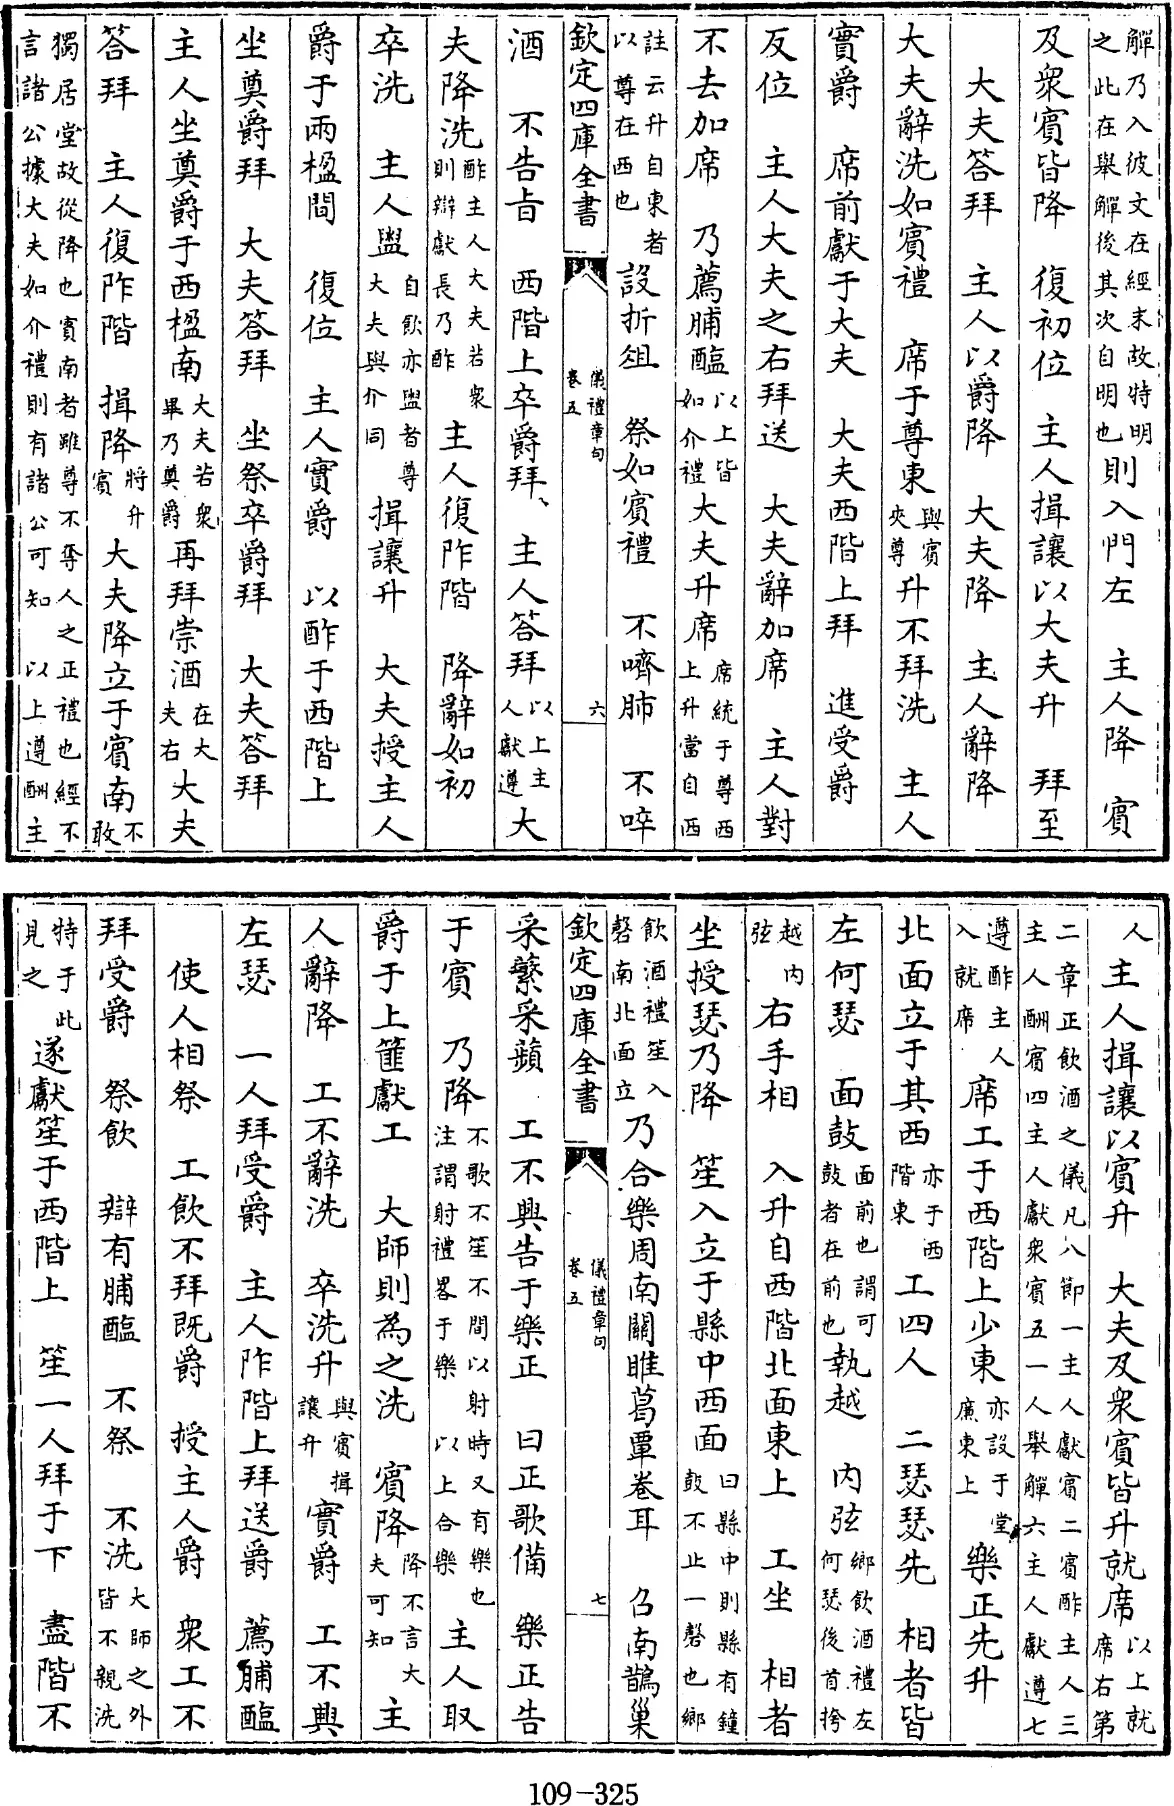 觶乃入彼文在經末故特明之此在舉觶後其次自明也則入門左　主人降　賓
及衆賓皆降　復初位　主人揖讓以大夫升　拜至
大夫答拜　主人以爵降　大夫降　主人辭降
大夫辭洗如賓禮　席于尊東與賓夾尊升不拜洗　主人
實爵　席前獻于大夫　大夫西階上拜　進受爵
反位　主人大夫之右拜送　大夫辭加席　主人對
不去加席　乃薦脯醢以上皆如介禮大夫升席席統于尊西上升當自西
註云升自東者以尊在西也設折俎　祭如賓禮　不嚌肺　不啐
欽定四庫全書　儀禮章句卷五　六
酒　不告旨　西階上卒爵拜　主人答拜以上主人獻遵大
夫降洗酢主人大夫若衆則辯獻長乃酢主人復阼階　降辭如初
卒洗　主人盥自飲亦盥者尊大夫與介同揖讓升　大夫授主人
爵于兩楹間　復位　主人實爵　以酢于西階上
坐奠爵拜　大夫答拜　坐祭卒爵拜　大夫答拜
主人坐奠爵于西楹南大夫若衆畢乃奠爵再拜崇酒在大夫右大夫
答拜　主人復阼階　揖降將升賓大夫降立于賓南不敢
獨居堂故從降也賓南者雖尊不奪人之正禮也經不言諸公據大夫如介禮則有諸公可知　以上遵酬主
人　主人揖讓以賓升　大夫及衆賓皆升就席以上就席右第
二章正飲酒之儀凡八節一主人獻賓二賓酢主人三主人酬賓四主人獻衆賓五一人舉觶六主人獻遵七
遵酢主人入就席席工于西階上少東亦設于堂廉東上樂正先升
北面立于其西亦于西階東工四人　二瑟瑟先　相者皆
左何瑟　面鼓面前也謂可鼓者在前也執越　内弦鄉飲酒禮左何瑟後首挎
越内弦右手相　入升自西階北面東上　工坐　相者
坐授瑟乃降　笙入立于縣中西面曰縣中則縣有鐘鼓不止一磬也鄉
飲酒禮笙入磬南北面立乃合樂周南關雎葛覃卷耳　召南鵲巢
欽定四庫全書　儀禮章句卷五　七
采蘩采蘋　工不興告于樂正　曰正歌備　樂正告
于賓　乃降不歌不笙不間以射時又有樂也注謂射禮畧于樂　以上合樂主人取
爵于上篚獻工　大師則為之洗　賓降降不言大夫可知主
人辭降　工不辭洗　卒洗升與賓揖讓升實爵　工不興
左瑟　一人拜受爵　主人阼階上拜送爵　薦脯醢
使人相祭　工飲不拜既爵　授主人爵　衆工不
拜受爵　祭飲　辯有脯醢　不祭　不洗大師之外皆不親洗
特于此見之遂獻笙于西階上　笙一人拜于下　盡階不
109-325